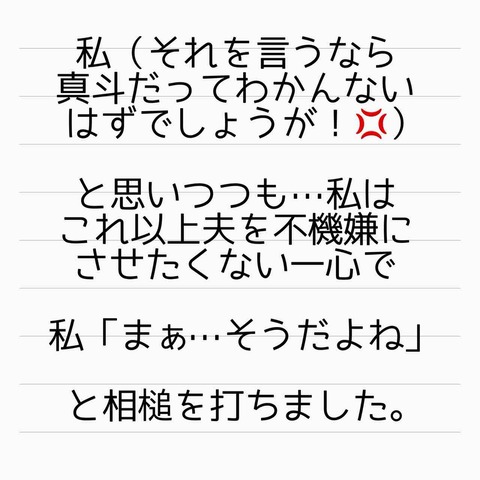 私（それを言うなら
真斗だってわかんない
はずでしょうが！💢）
と思いつつも…私は
これ以上夫を不機嫌に
させたくない一心で
私「まぁ…そうだよね」
と相槌を打ちました。